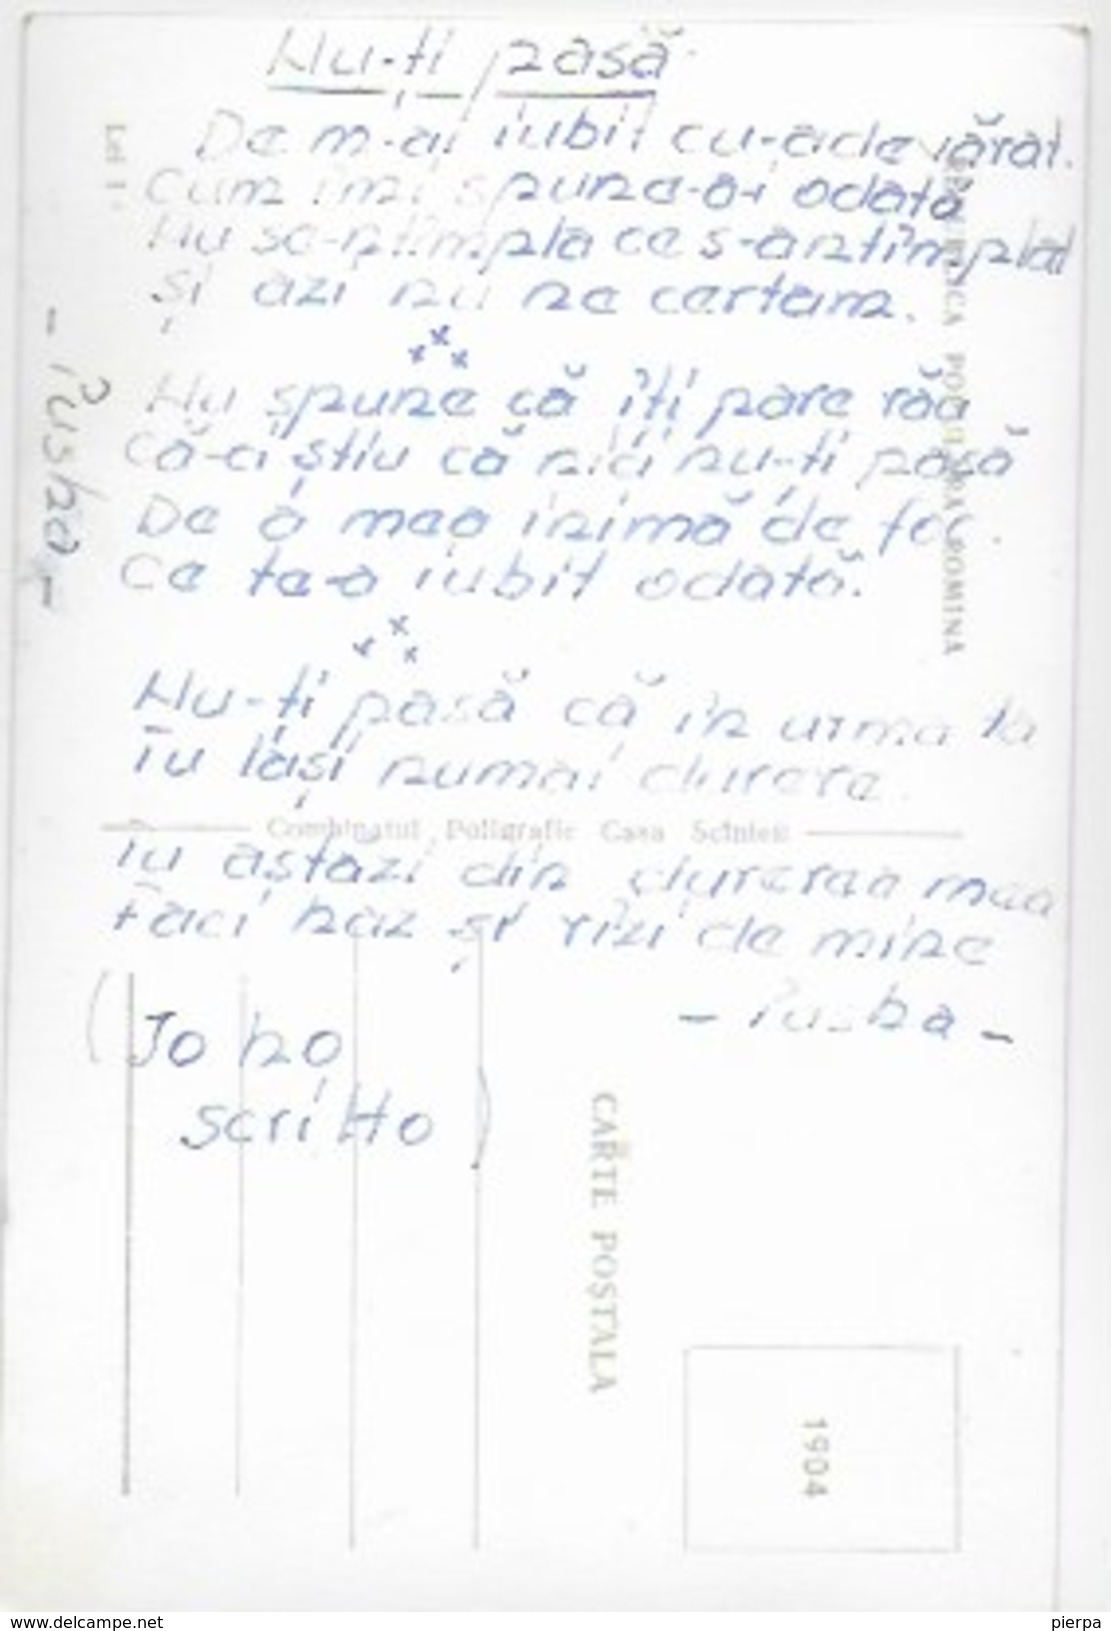 Nu-ți pasă
De m-ai iubit cu-adevărat.
Cum îmi spune-ai odată
Nu se-ntîmpla ce s-antîmplat
Și azi nu ne certam.
Nu spune că îți pare rău
Că-ci știu că nici nu-ți pasă
De a mea inimă de foc.
Ce te-a iubit odată.
Nu-ți pasă că în urma ta
Tu lași numai durere.
Combinatul Poligrafic Casa Scînteii
Tu astăzi din durerea mea
Faci haz și rîzi de mine
- Pusha -
(Jo ho
scritto)
- Pusha -
Lei 1
REPUBLICA POPULARA ROMINA
CARTE POȘTALA
1904
www.delcampe.net
pierpa